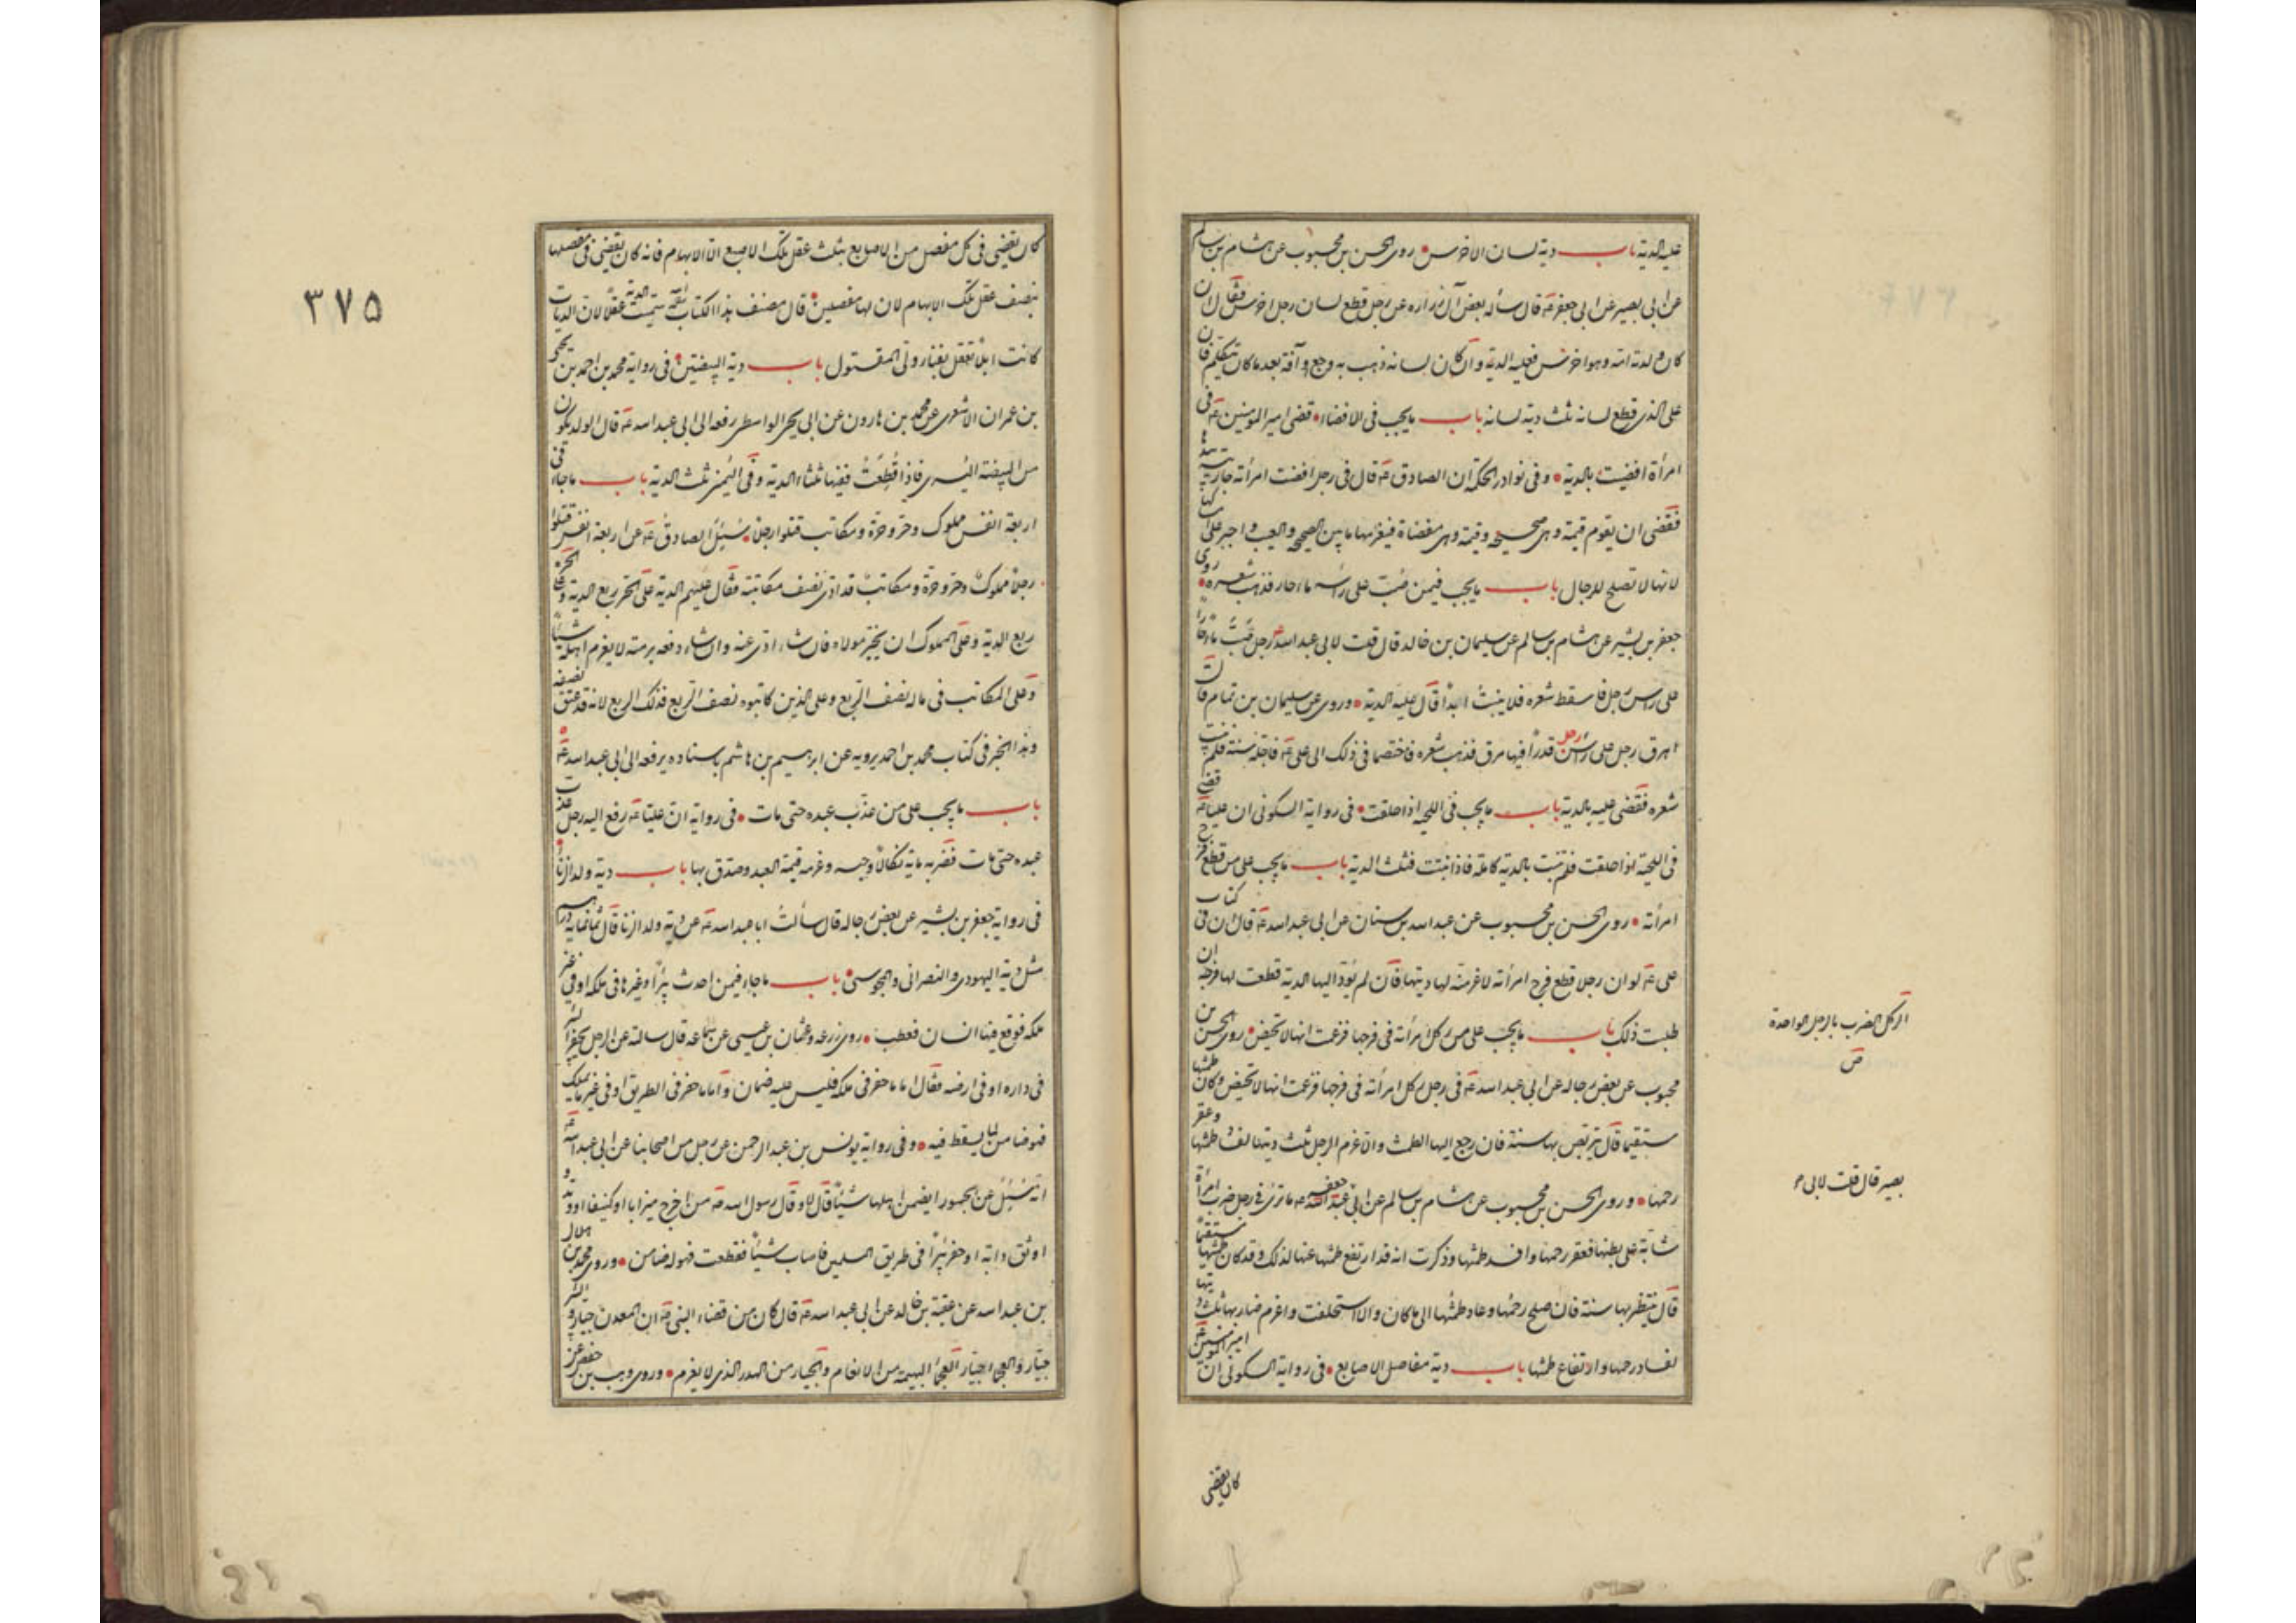 عليه الدية باب دية لسان الاخرس روى الحسن بن محبوب عن هشام بن سالم
عن ابى بصير عن ابى جعفر ع قال سأله بعض آل زراره عن رجل قطع لسان رجل اخرس فقال ان
كان ولدته امه وهو اخرس فعليه الدية وان كان لسانه ذهب به وجع او آفة بعد ما كان يتكلم فان
على الذى قطع لسانه ثلث دية لسانه باب ما يجب فى الافضاء قضى امير المومنين ع فى
امرأة افضيت بالدية وفى نوادر الحكمة ان الصادق ع قال فى رجل افضت امرأته جاريته بيدها
فقضى ان يقوم قيمة وهى صحيحة وقيمة وهى مفضاة فيغرمها ما بين الصحيح والعيب واجبر على امساكها
لانها لا تصلح للرجال باب ما يجب فيمن صب على رأسه ماء حار فذهب شعره روى
جعفر بن بشير عن هشام بن سالم عن سليمان بن خالد قال قلت لابى عبد الله ع رجل صب ماء حارا
على راس رجل فاسقط شعره فلا ينبت ابدا قال عليه الدية وروى عن سليمان بن تمام قال
اهرق رجل على رأس رجل قدرا فيها مرق فذهب شعره فاختصما فى ذلك الى على ع فاجله سنة فلم ينبت
شعره فقضى عليه بالدية باب ما يجب فى اللحية اذا حلقت فى رواية السكونى ان عليا ع قضى
فى اللحية اذا حلقت فلم تنبت بالدية كاملة فاذا نبتت فثلث الدية باب ما يجب على من قطع فرج
امرأته روى الحسن بن محبوب عن عبد الله بن سنان عن ابى عبد الله ع قال ان فى كتاب
على ع لو ان رجلا قطع فرج امرأته لاغرمته لها ديتها فان لم يؤد اليها الدية قطعت لها فرجه ان
طلبت ذلك باب ما يجب على من ركل امرأة فى فرجها فزعمت انها لا تحيض روى الحسن بن
محبوب عن بعض رجاله عن ابى عبد الله ع فى رجل ركل امرأته فى فرجها فزعمت انها لا تحيض وكان طمثها
مستقيما قال يتربص بها سنة فان رجع اليها الطمث والا غرم الرجل ثلث ديتها لفساد طمثها وعقر
رحمها وروى الحسن بن محبوب عن هشام بن سالم عن ابى عبد الله جعفر ع ما ترى فى رجل ضرب امرأة
شابة على بطنها فعقر رحمها وافسد طمثها وذكرت انه قد ارتفع طمثها عنها لذلك وقد كان طمثها مستقيما
قال ينتظر بها سنة فان صلح رحمها وعاد طمثها الى ما كان والا استحلفت واغرم ضاربها ثلث ديتها
لفساد رحمها وارتفاع طمثها باب دية مفاصل الاصابع فى رواية السكونى ان امير المومنين ع
كان يقضى
الركل الضرب بالرجل الواحدة
ص
بصير قال قلت لابى
٣٧٥
كان يقضى فى كل مفصل من الاصابع بثلث عقل تلك الاصبع الا الابهام فانه كان يقضى فى مفصلها
بنصف عقل تلك الابهام لان لها مفصلين قال مصنف هذا الكتاب سميت الدية عقلا لان الديات
كانت ابلا تعقل بفناء ولى المقتول باب دية البيضتين فى رواية محمد بن احمد بن يحيى
بن عمران الاشعرى عن محمد بن هارون عن ابى يحيى الواسطى رفعه الى ابى عبد الله ع قال الولد يكون
من البيضة اليسرى فاذا قطعت ففيها ثلثا الدية وفى اليمنى ثلث الدية باب ما جاء فى
اربعة انفس مملوك وحر وحرة ومكاتب قتلوا رجلا سئل الصادق ع عن اربعة انفس قتلوا
رجلا مملوك وحر وحرة ومكاتب قد ادى نصف مكاتبته فقال عليهم الدية على الحر ربع الدية وعلى الحرة
ربع الدية وعلى المملوك ان يخير مولاه فان شاء ادى عنه وان شاء دفعه برمته لا يغرم اهله شيئا
وعلى المكاتب فى ماله نصف الربع وعلى الذين كاتبوه نصف الربع فذلك الربع لانه قد عتق نصفه
وهذا الخبر فى كتاب محمد بن احمد يرويه عن ابرهيم بن هاشم باسناده يرفعه الى ابى عبد الله ع
باب ما يجب على من عذب عبده حتى مات فى رواية ان عليا ع رفع اليه رجل عذب
عبده حتى مات فضربه ماية نكالا وحبسه وغرمه قيمة العبد وصدق بها باب دية ولد الزنا
فى رواية جعفر بن بشير عن بعض رجاله قال سألت ابا عبد الله ع عن دية ولد الزنا قال ثمانماية درهم
مثل دية اليهودى والنصرانى والمجوسى باب ما جاء فيمن احدث بئرا وغيرها فى ملكه او فى غير
ملكه فوقع فيها انسان فعطب روى زرعة وعثمان بن عيسى عن سماعه قال سالته عن الرجل يحفر البئر
فى داره او فى ارضه فقال اما ما حفر فى ملكه فليس عليه ضمان واما ما حفر فى الطريق او فى غير ما يملك
فهو ضامن لما يسقط فيه وفى رواية يونس بن عبد الرحمن عن رجل من اصحابنا عن ابى عبد الله ع
انه سئل عن الجسور ايضمن اهلها شيئا قال لا وقال رسول الله ص من اخرج ميزابا او كنيفا او وتد وتدا
او وثق دابة او حفر بئرا فى طريق المسلمين فاصاب شيئا فعطبت فهو له ضامن وروى محمد بن هلال
بن عبد الله عن عقبة بن خالد عن ابى عبد الله ع قال كان من قضاء النبى ص ان المعدن جبار والبئر
جبار والعجماء جبار العجماء البهيمة من الانعام والجبار من الهدر الذى لا يغرم وروى وهب بن حفص عن